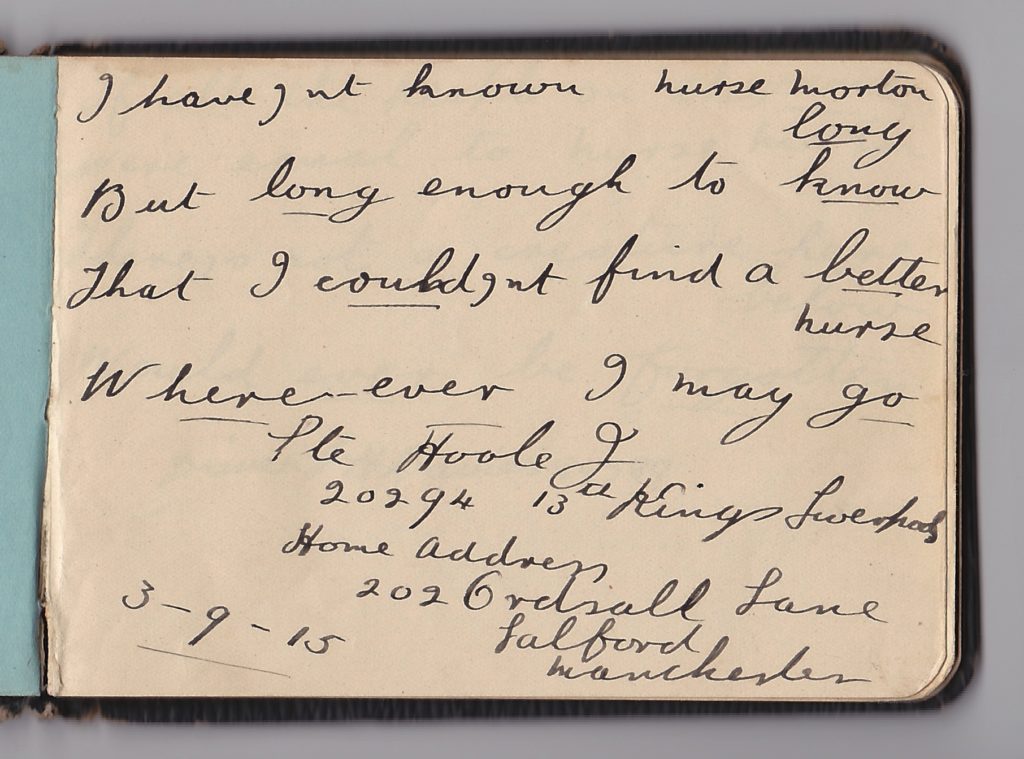 I have,nt known nurse Morton
long
But long enough to know
That I could,nt find a better
nurse
Where-ever I may go
Pte Hoole J
20294 13th Kings Liverpools
Home Address
202 Ordsall Lane
Salford
Manchester
3-9-15